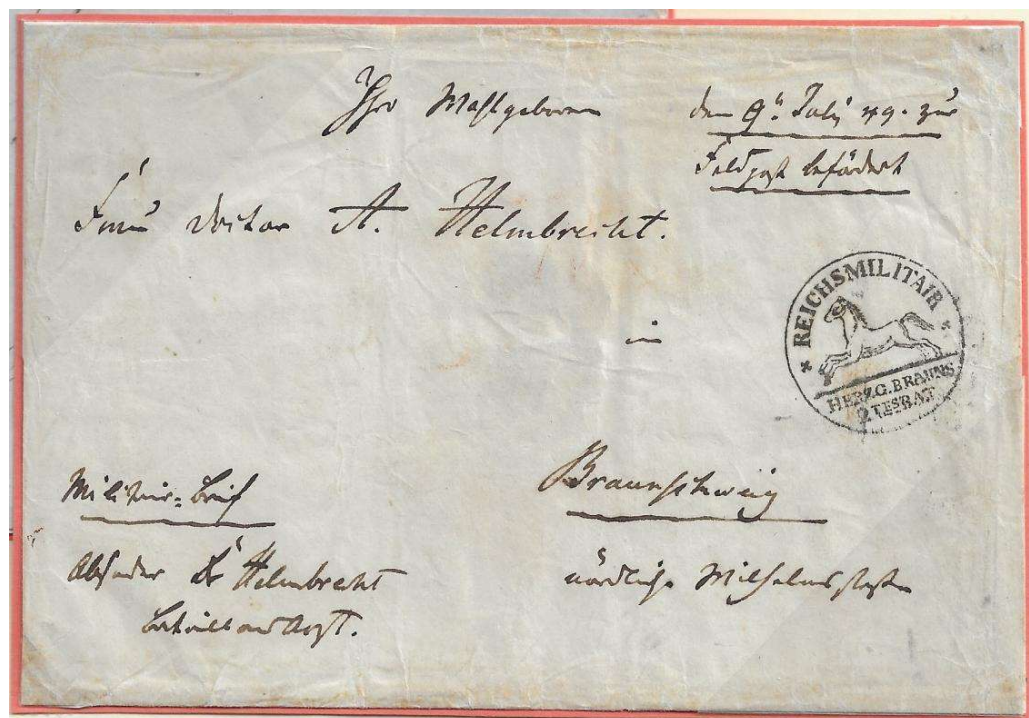 Ihro Wohlgeboren
den 9n July 49. zur
Feldpost befördert
Frau Doctor A. Helmbrecht.
in
* REICHSMILITAIR *
HERZ.G.BRAUNS
2TESBAT
Militair=Brief
Braunschweig
Absender Dr Helmbrecht
nördliche Wilhelmstraße
Bataillonsarzt.